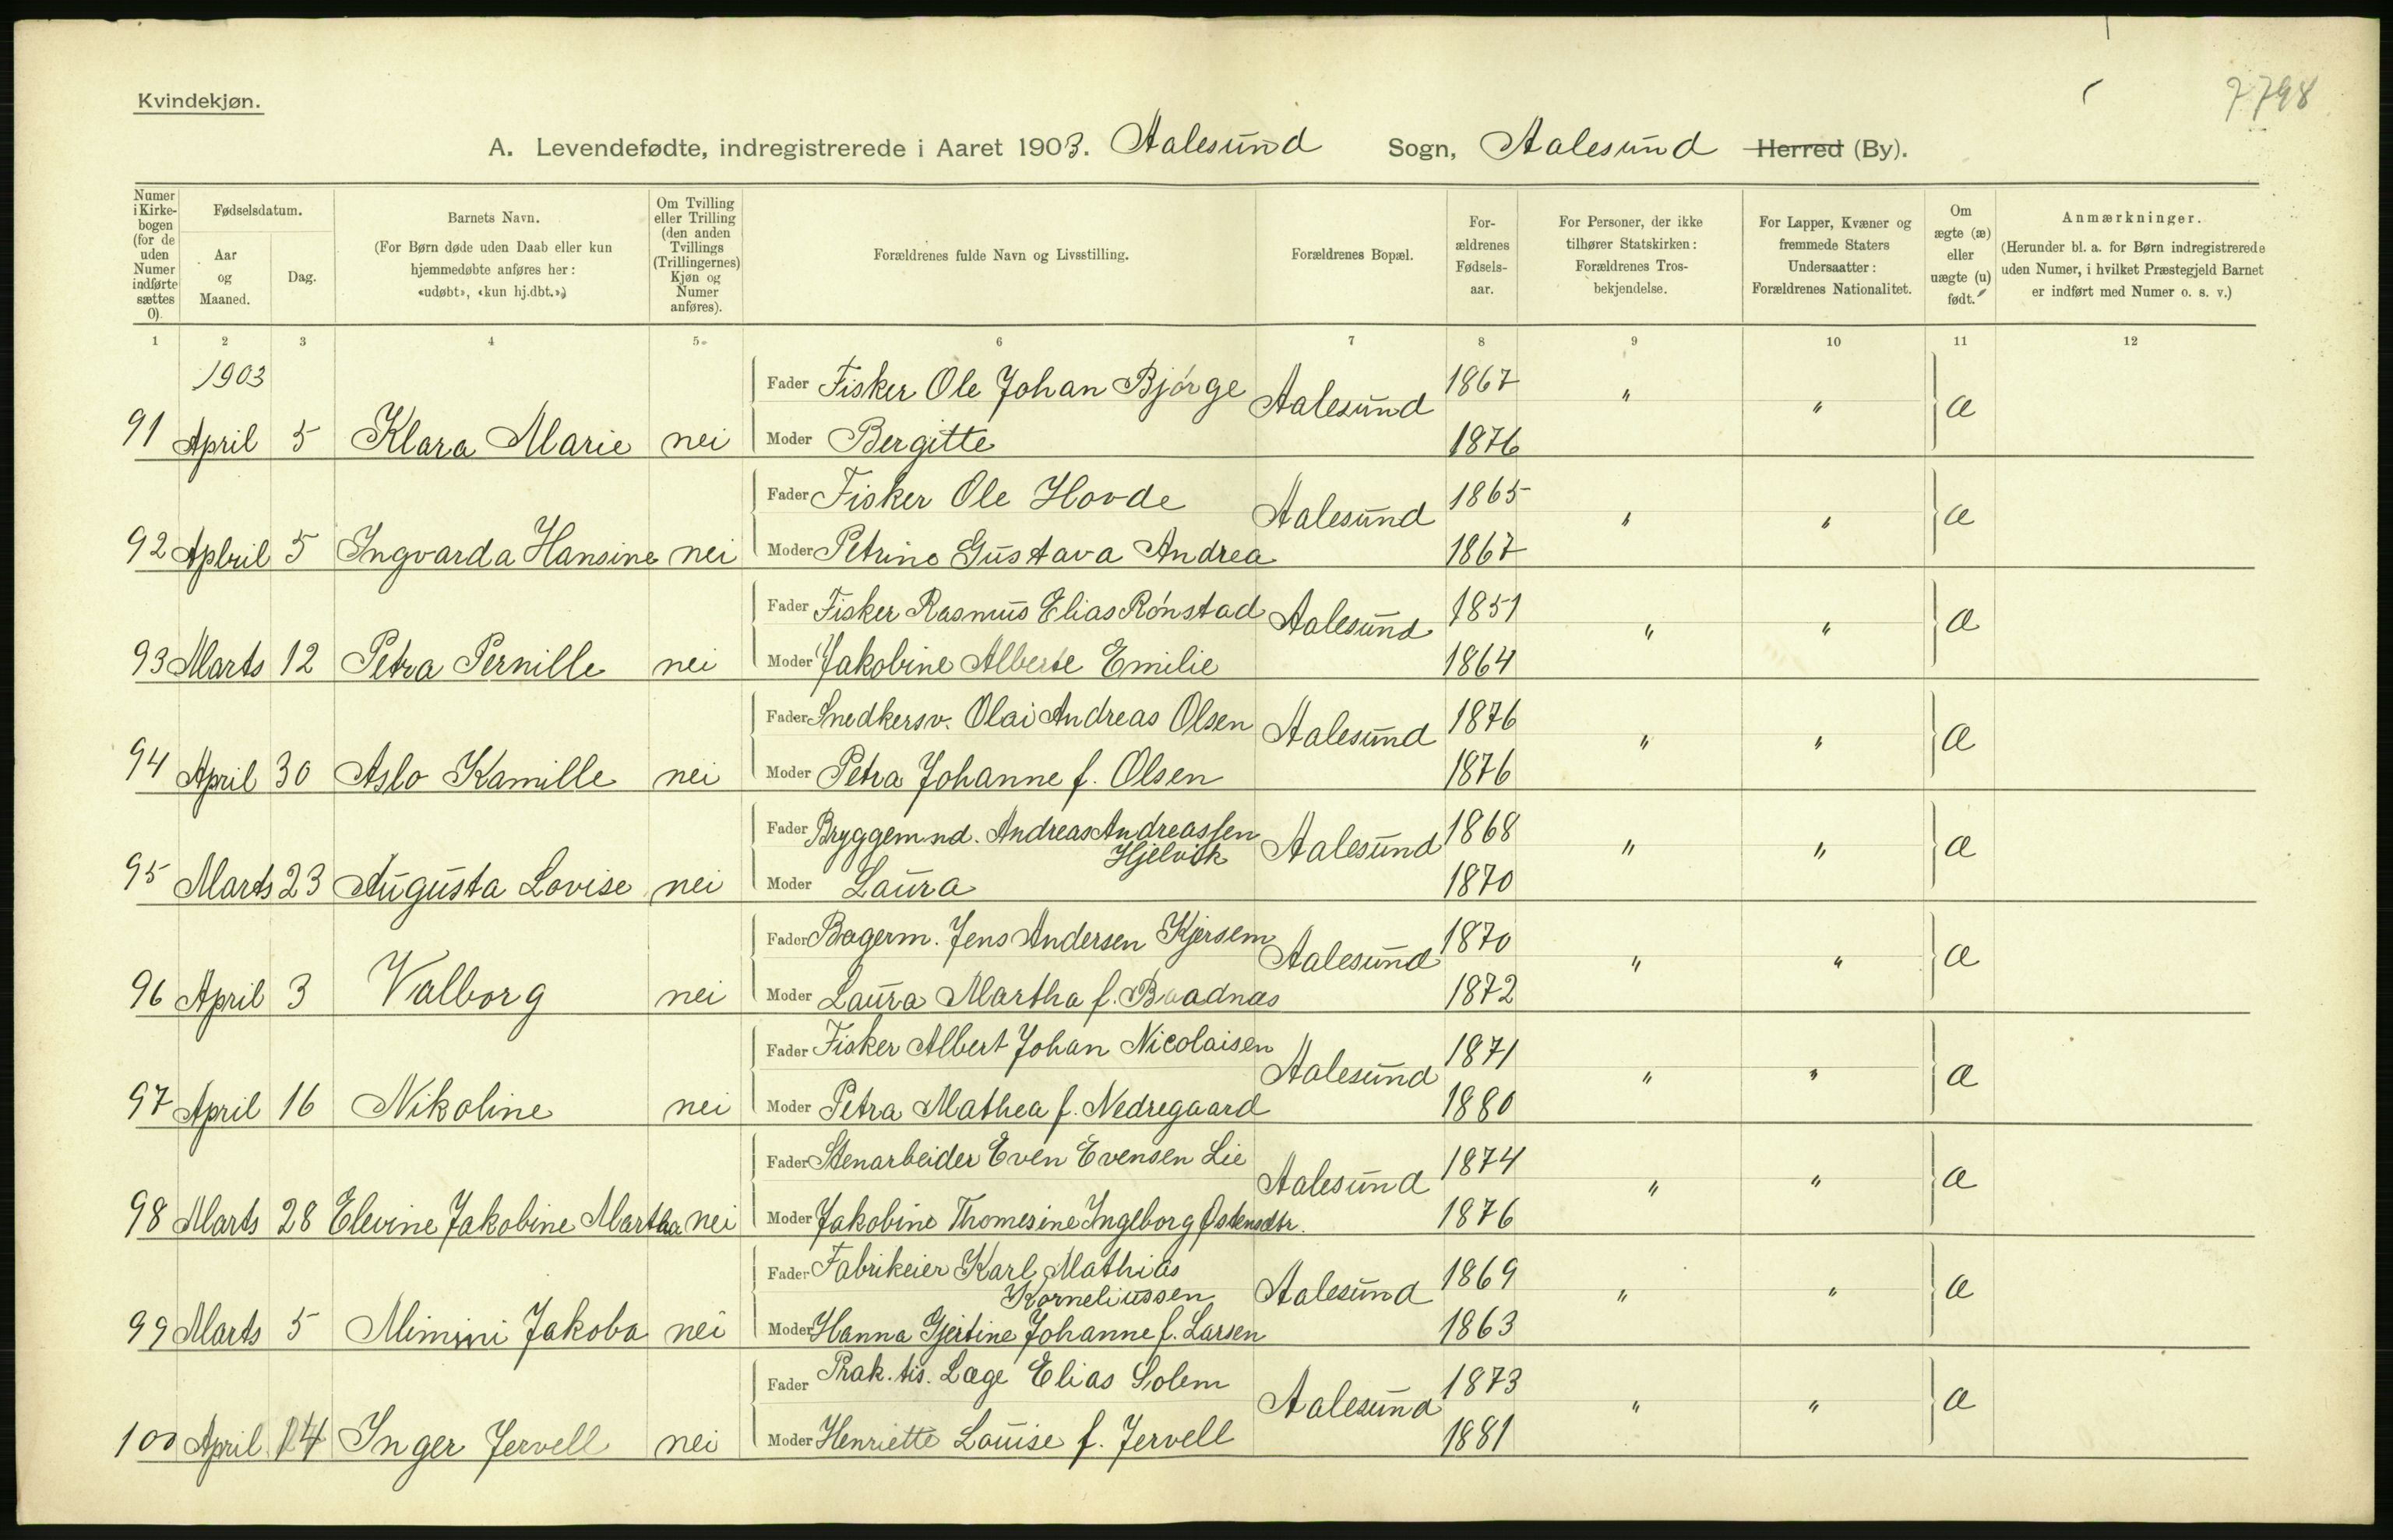 7798
Kvindekjøn.
A. Levendefødte, indregistrerede i Aaret 1903. Aalesund Sogn, Aalesund Herred (By).
Numer i Kirkebogen (for de uden Numer indførte sættes 0).
Fødselsdatum.
Aar og Maaned.
Dag.
Barnets Navn.
(For Børn døde uden Daab eller kun hjemmedøbte anføres her: «udøbt», «kun hj.dbt.»)
Om Tvilling eller Trilling (den anden Tvillings (Trillingernes) Kjøn og Numer anføres).
Forældrenes fulde Navn og Livsstilling.
Forældrenes Bopæl.
Forældrenes Fødselsaar.
For Personer, der ikke tilhører Statskirken: Forældrenes Trosbekjendelse.
For Lapper, Kvæner og fremmede Staters Undersaatter: Forældrenes Nationalitet.
Om ægte (æ) eller uægte (u) født.
Anmærkninger.
(Herunder bl. a. for Børn indregistrerede uden Numer, i hvilket Præstegjeld Barnet er indført med Numer o. s. v.)
1 2 3 4 5 6 7 8 9 10 11 12
1903
Fader Fisker Ole Johan Bjørge Aalesund 1867 " " æ
91 April 5 Klara Marie nei Moder Bergitte 1876
Fader Fisker Ole Hovde Aalesund 1865 " " æ
92 Aplril 5 Ingvarda Hansine nei Moder Petrine Gustava Andrea 1867
Fader Fisker Rasmus Elias Rønstad Aalesund 1851 " " æ
93 Marts 12 Petra Pernille nei Moder Jakobine Alberte Emilie 1864
Fader Snedkersv. Olai Andreas Olsen Aalesund 1876 " " æ
94 April 30 Aslo Kamille nei Moder Petra Johanne f. Olsen 1876
Fader Bryggemnd. Andreas Andreassen Aalesund 1868 " " æ
Hjelvik
95 Marts 23 Augusta Lovise nei Moder Laura 1870
Fader Bagerm. Jens Andersen Kjersem Aalesund 1870 " " æ
96 April 3 Valborg nei Moder Laura Martha f. Baadnes 1872
Fader Fisker Albert Johan Nicolaisen Aalesund 1871 " " æ
97 April 16 Nikoline nei Moder Petra Mathea f. Nedregaard 1880
Fader Stenarbeider Even Evensen Lie Aalesund 1874 " " æ
98 Marts 28 Elevine Jakobine Martha nei Moder Jakobine Thomesine Ingeborg Østensdtr. 1876
Fader Fabrikeier Karl Mathias Aalesund 1869 " " æ
Korneliussen
99 Marts 5 Mimmi Jakoba nei Moder Hanna Gjertine Johanne f. Larsen 1863
Fader Prak. tis. Læge Elias Solem Aalesund 1873 " " æ
100 April 14 Inger Jervell nei Moder Henriette Louise f. Jervell 1881